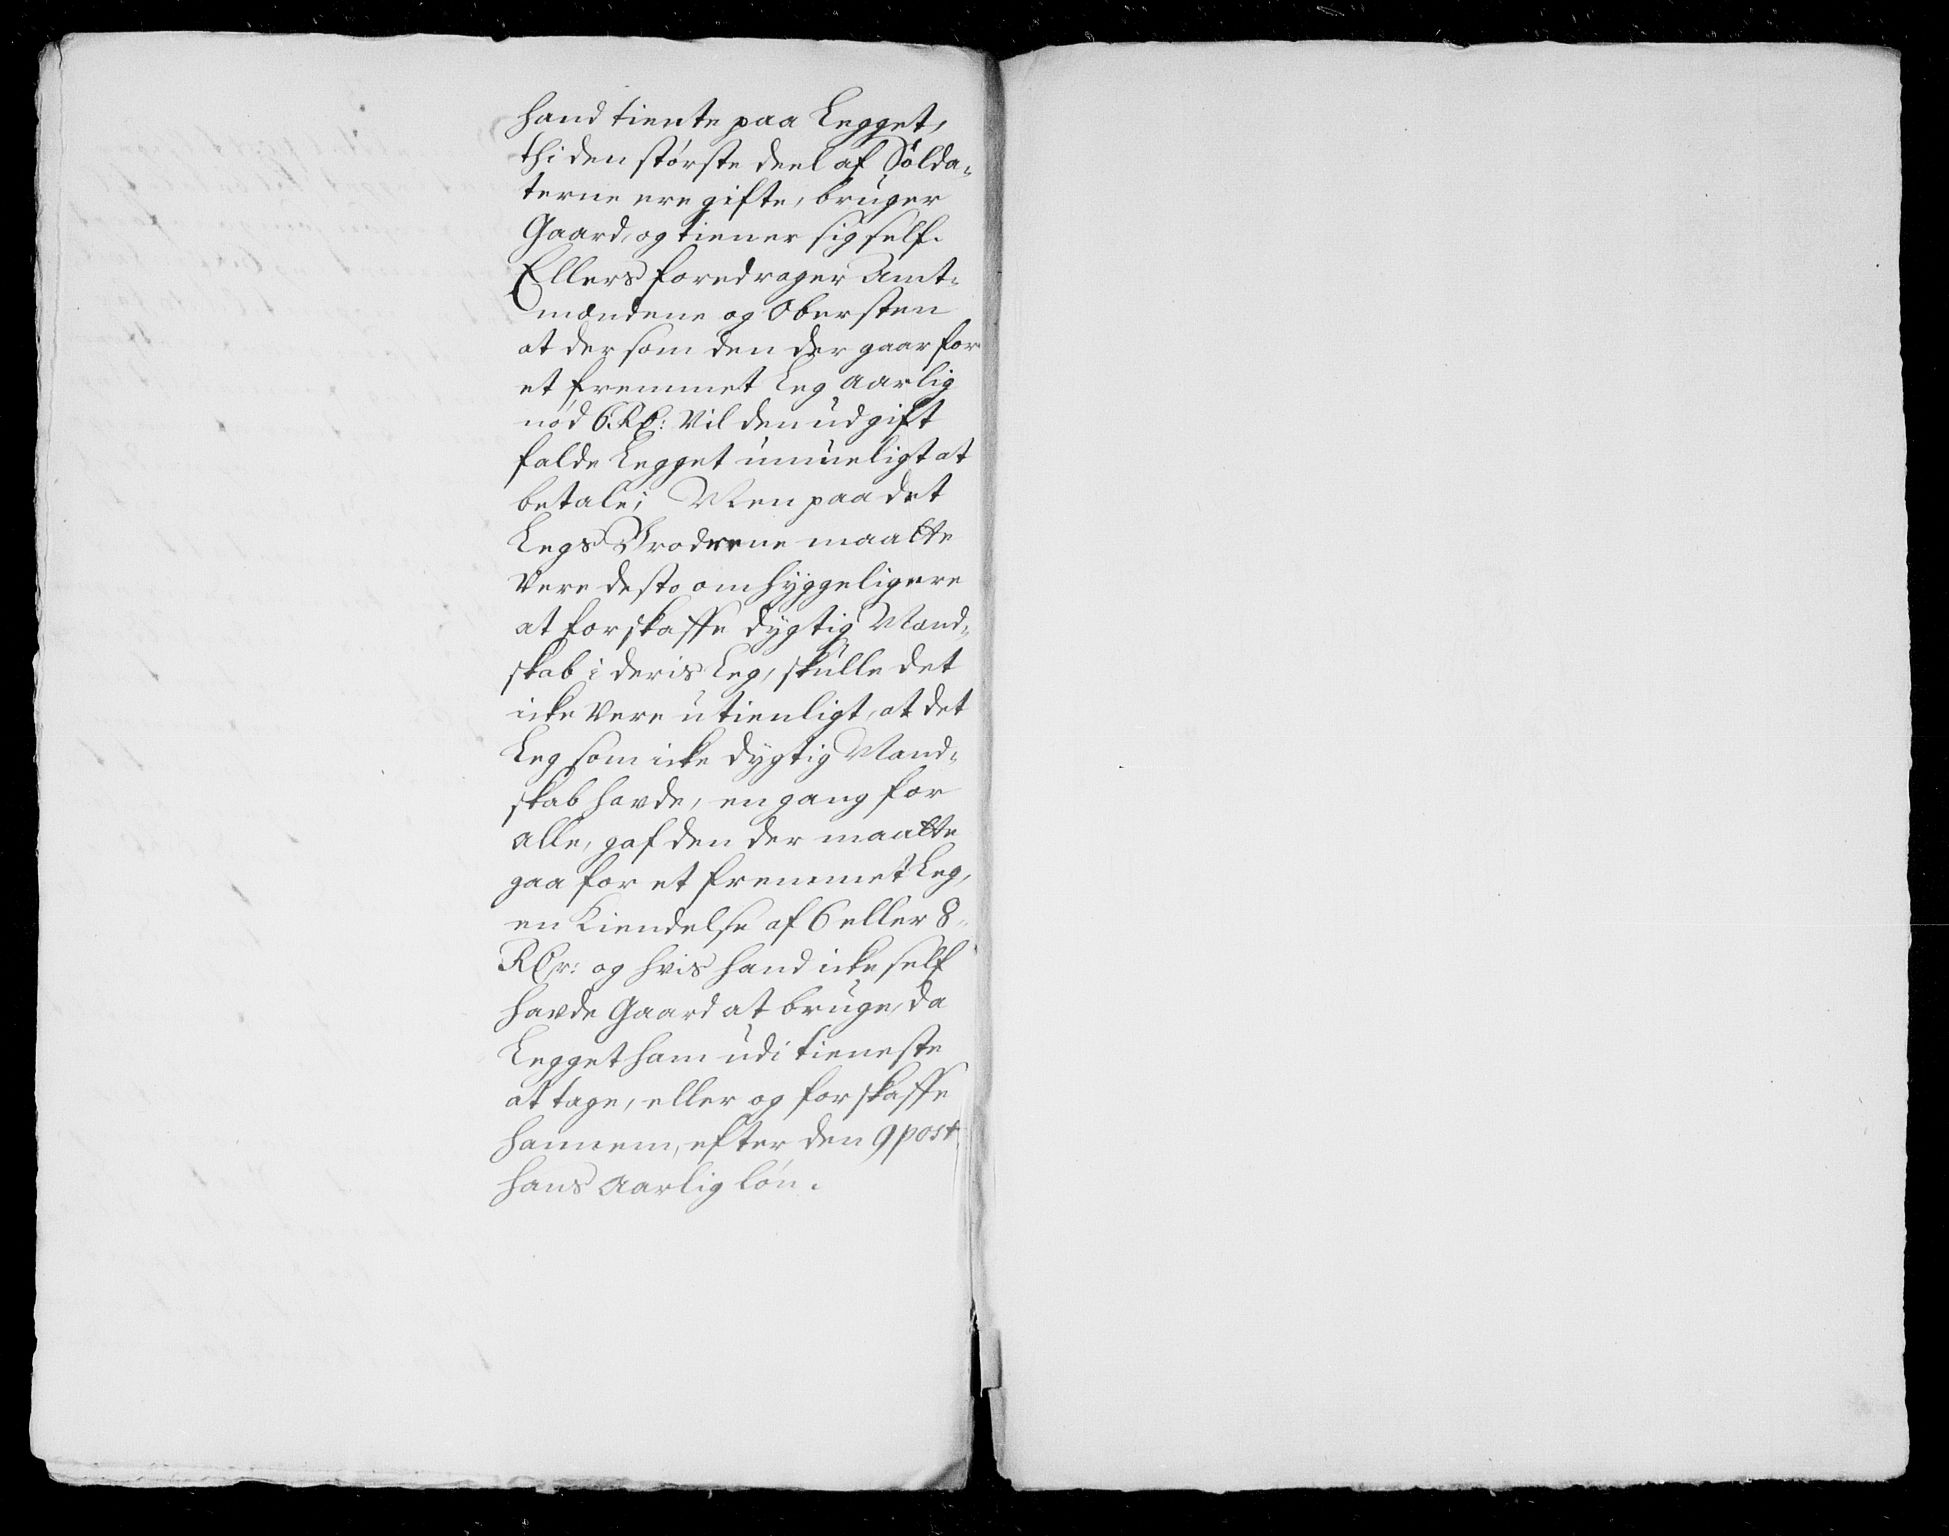 hand tiente paa Legget,
thi den største deel af Solda-
terne ere gifte, bruger
Gaard, og tiener sig self.
Ellers foredrager Amt-
mændene og Obersten
at dersom den der gaar for
et fremmet Leg aarlig
nød 6 Rd: vil den udgift
falde Legget umueligt at
betale; Men paa det
Legs Brødrene maatte
være desto omhyggeligere
at forskaffe dygtig Mand-
skab i deris Leg, skulle det
icke være utienligt, at det
Leg som icke dygtig Mand-
skab hafde, en gang for
alle, gaf den der maatte
gaa for et fremmet Leg,
en Kiendelse af 6 eller 8
Rdr: og hvis hand icke self
hafde Gaard at bruge, da
Legget ham udi tieneste
at tage, eller og forskaffe
hannem, efter den 9 post
hans aarlig løn.